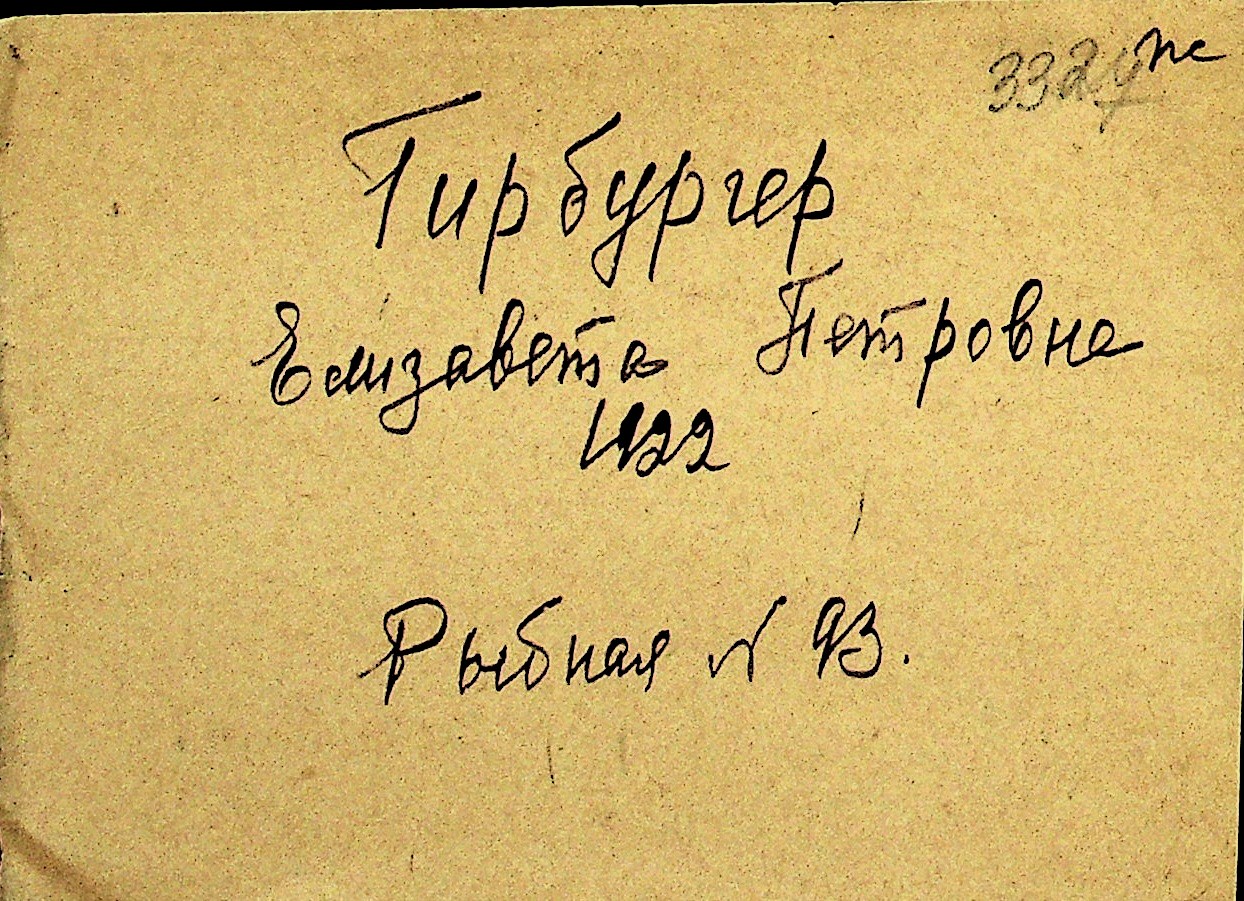 Гирбургер
Елизавета Петровна
1922
Рыбная № 93.